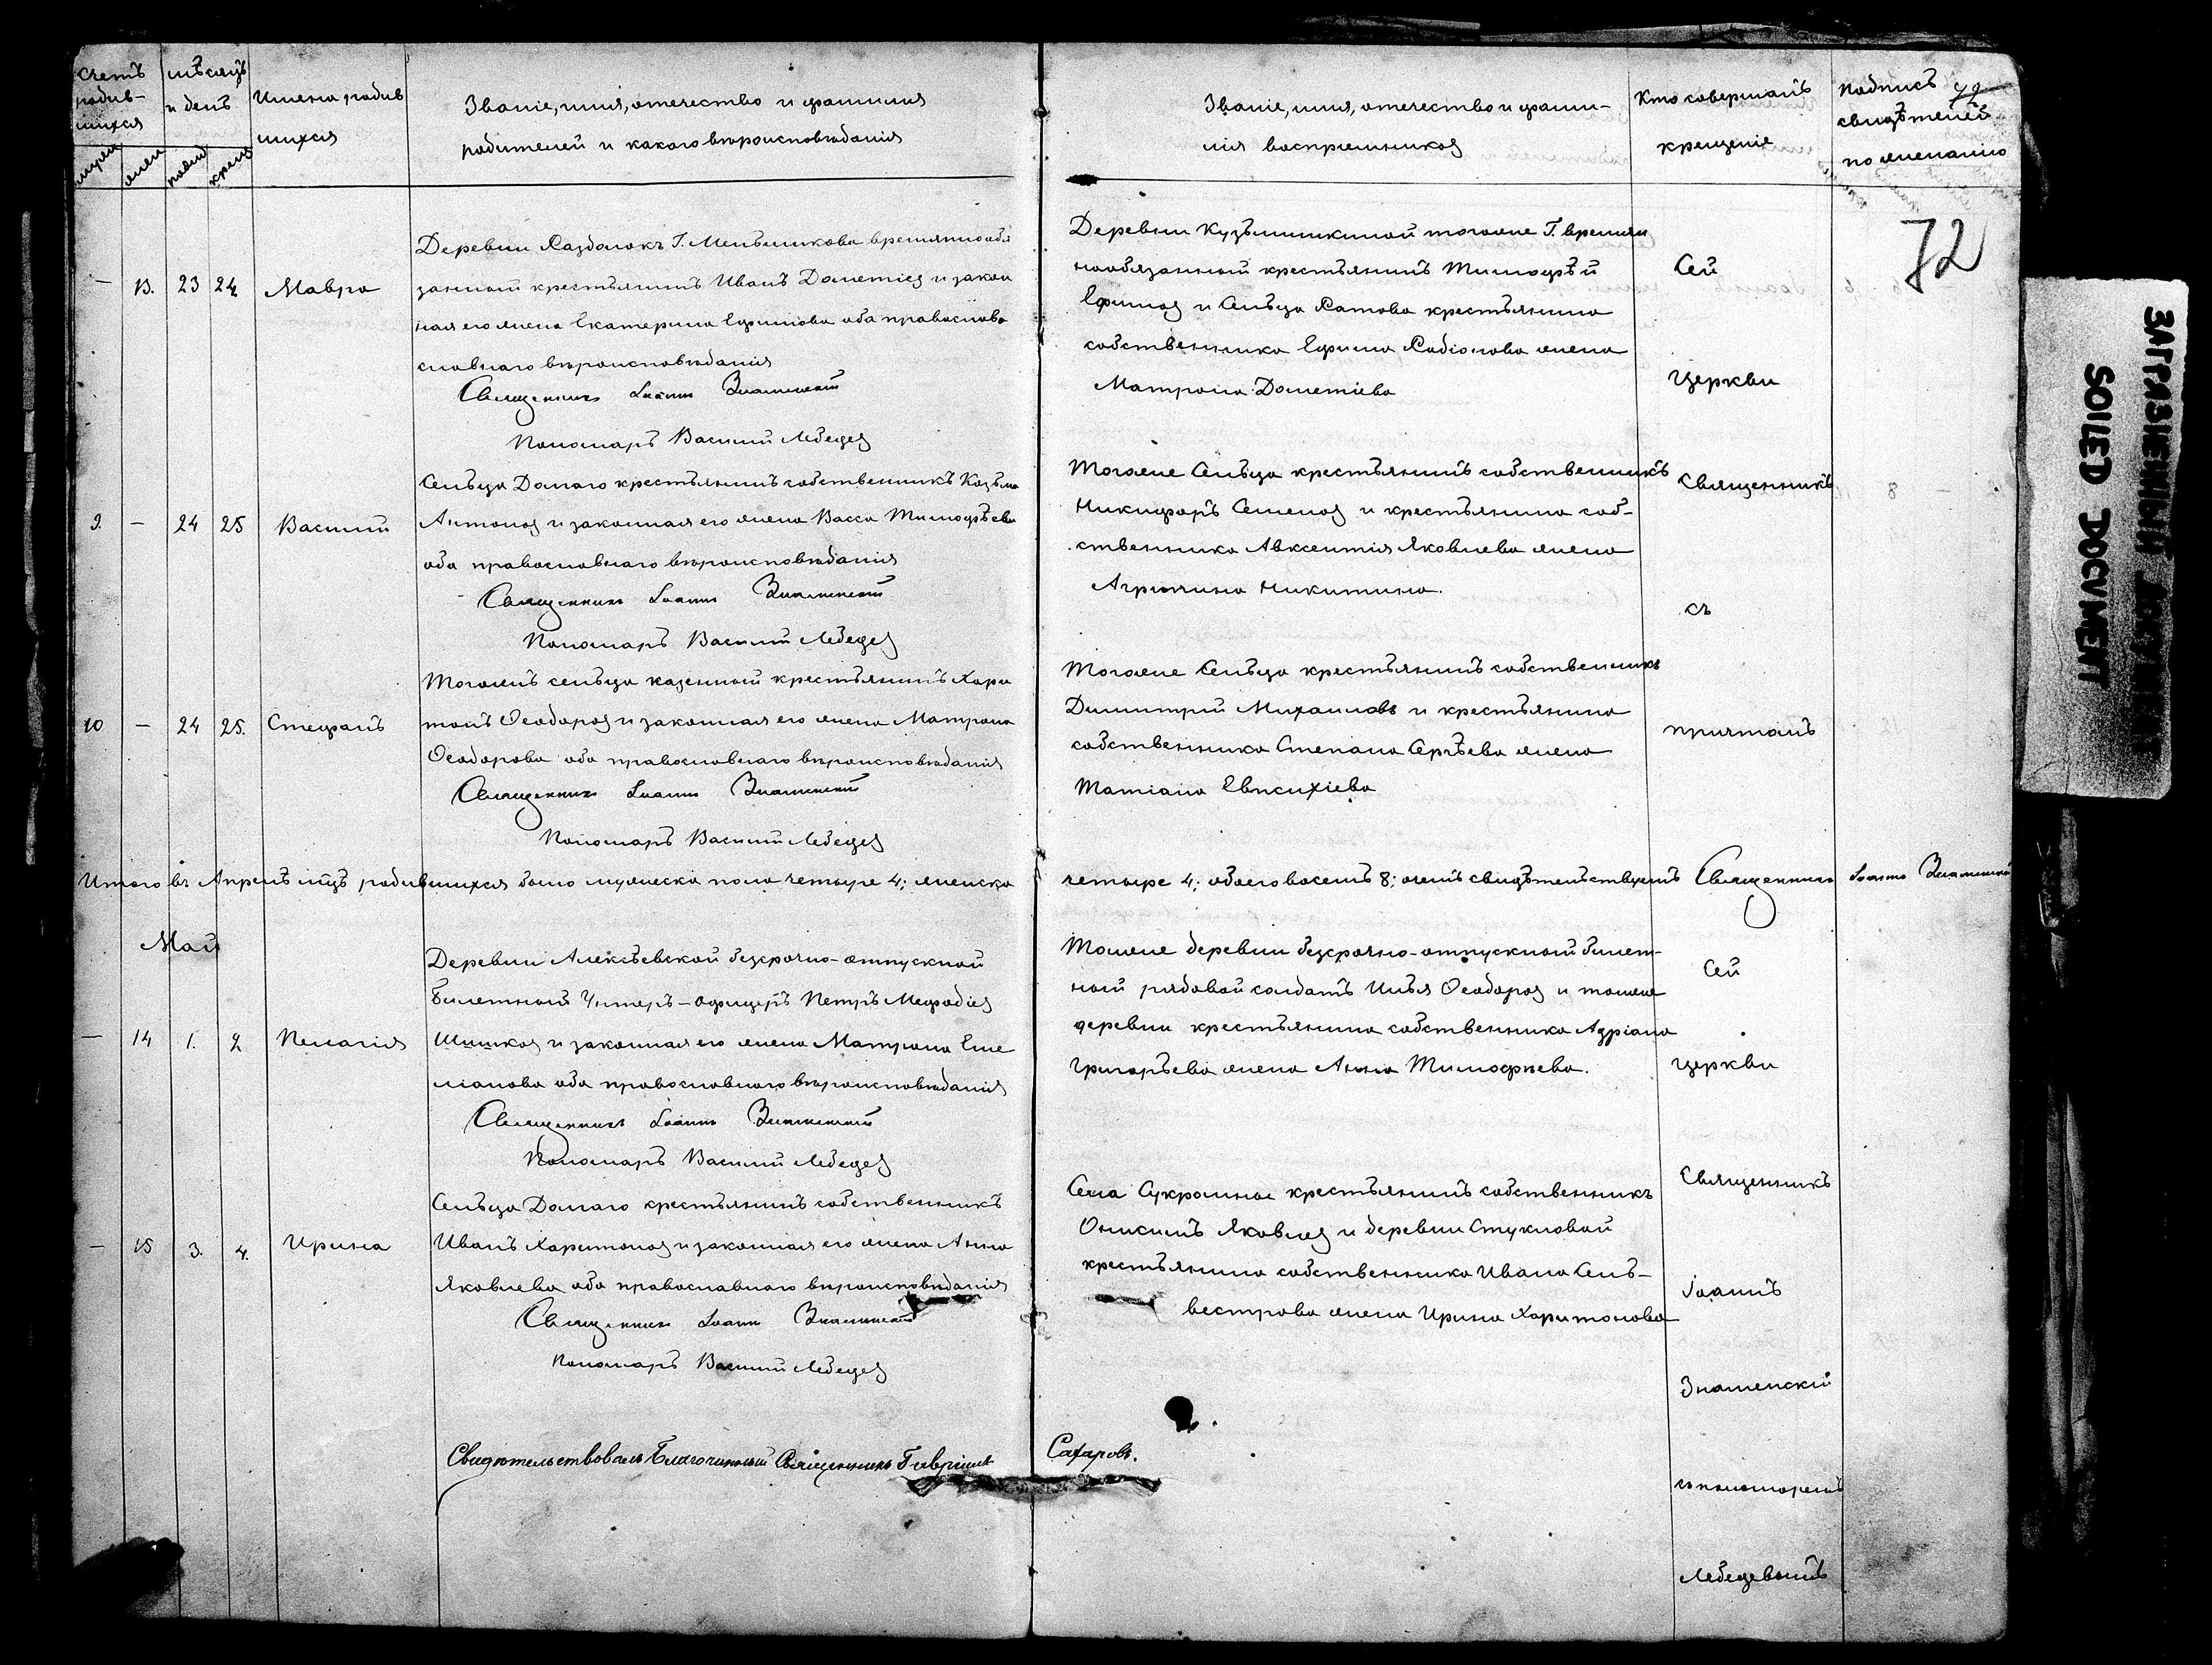 Счетъ родив-шихся
мѣсяцъ и день
Имена родив шихся
Званіе, имя, отечество и фамилия
родителей и какого вѣроисповѣданія
Званіе, имя, отечество и фами-
лія воспріемниковъ
Кто совершалъ
крещеніе
Подпись
свидѣтелей
по желанію
72
72
Деревни Раздолокъ Г. Меньшикова временнообя
— 13. 23 24 Мавра
занный крестьянинъ Иванъ Дометіевъ и закон
ная его жена Екатерина Ефимова оба православо
славнаго вѣроисповѣданія
Священникъ Іоаннъ Знаменскій
Пономарь Василій Лебедевъ
Деревни Кузьминкиной тогоже Г. времен
нообязанный крестьянинъ Тимофѣй
Ефимовъ и Сельца Ратова крестьянина
собственника Ефима Радіонова жена
Матрона Дометіева
Сельца Долгаго крестьянинъ собственникъ Козьма
9. — 24 25 Василій
Антоновъ и законная его жена Васса Тимофѣева
оба православнаго вѣроисповѣданія
Священникъ Іоаннъ Знаменскій
Пономарь Василій Лебедевъ
Тогоже Сельца крестьянинъ собственникъ
Никифоръ Семеновъ и крестьянина соб-
ственника Авксентія Яковлева жена
Агрипина Никитина.
Тогожъ сельца казенный крестьянинъ Хари
10 — 24 25. Стефанъ
тонъ Ѳеодоровъ и законная его жена Матрона
Ѳеодорова оба православнаго вѣроисповѣданія
Священникъ Іоаннъ Знаменскій
Пономарь Василій Лебедевъ
Тогоже Сельца крестьянинъ собственникъ
Димитрій Михаиловъ и крестьянина
собственника Степана Сергѣева жена
Татіана Евпсихіева
Итого въ Апрелѣ мцѣ родившихся было мужеска пола четыре 4; женска
четыре 4; обоего восемь 8; очемъ свидѣтельствуемъ Священникъ Іоаннъ Знаменскій
Май
Деревни Алексѣевской безсрочно-отпускной
билетный Унтеръ-офицеръ Петръ Мефодіевъ
— 14 1. 2 Пелагія
Шишковъ и законная его жена Матрона Еме
ліанова оба православнаго вѣроисповѣданія
Священникъ Іоаннъ Знаменскій
Пономарь Василій Лебедевъ
Тоже деревни безсрочно-отпускной билет-
ной рядовой солдатъ Илья Ѳеодоровъ и тоже
деревни крестьянина собственника Адріана
Григорьева жена Анна Тимофѣева.
Сельца Долгаго крестьянинъ собственникъ
— 15 3. 4. Ирина
Иванъ Харитоновъ и законная его жена Анна
Яковлева оба православнаго вѣроисповѣданія
Священникъ Іоаннъ Знаменскій
Пономарь Василій Лебедевъ
Села Сукромное крестьянинъ собственникъ
Онисимъ Яковлевъ и деревни Стукловой
крестьянина собственника Ивана Сель-
вестрова жена Ирина Харитонова
Сей
Церкви
Священникъ
съ
причтомъ
Сей
Церкви
Священникъ
Іоаннъ
Знаменскій
съ пономаремъ
Лебедевымъ
Свидѣтельствовалъ Благочинный Священникъ Гавріилъ Сахаровъ.
ЗАГРЯЗНЕННЫЙ ДОКУМЕНТ
SOILED DOCUMENT